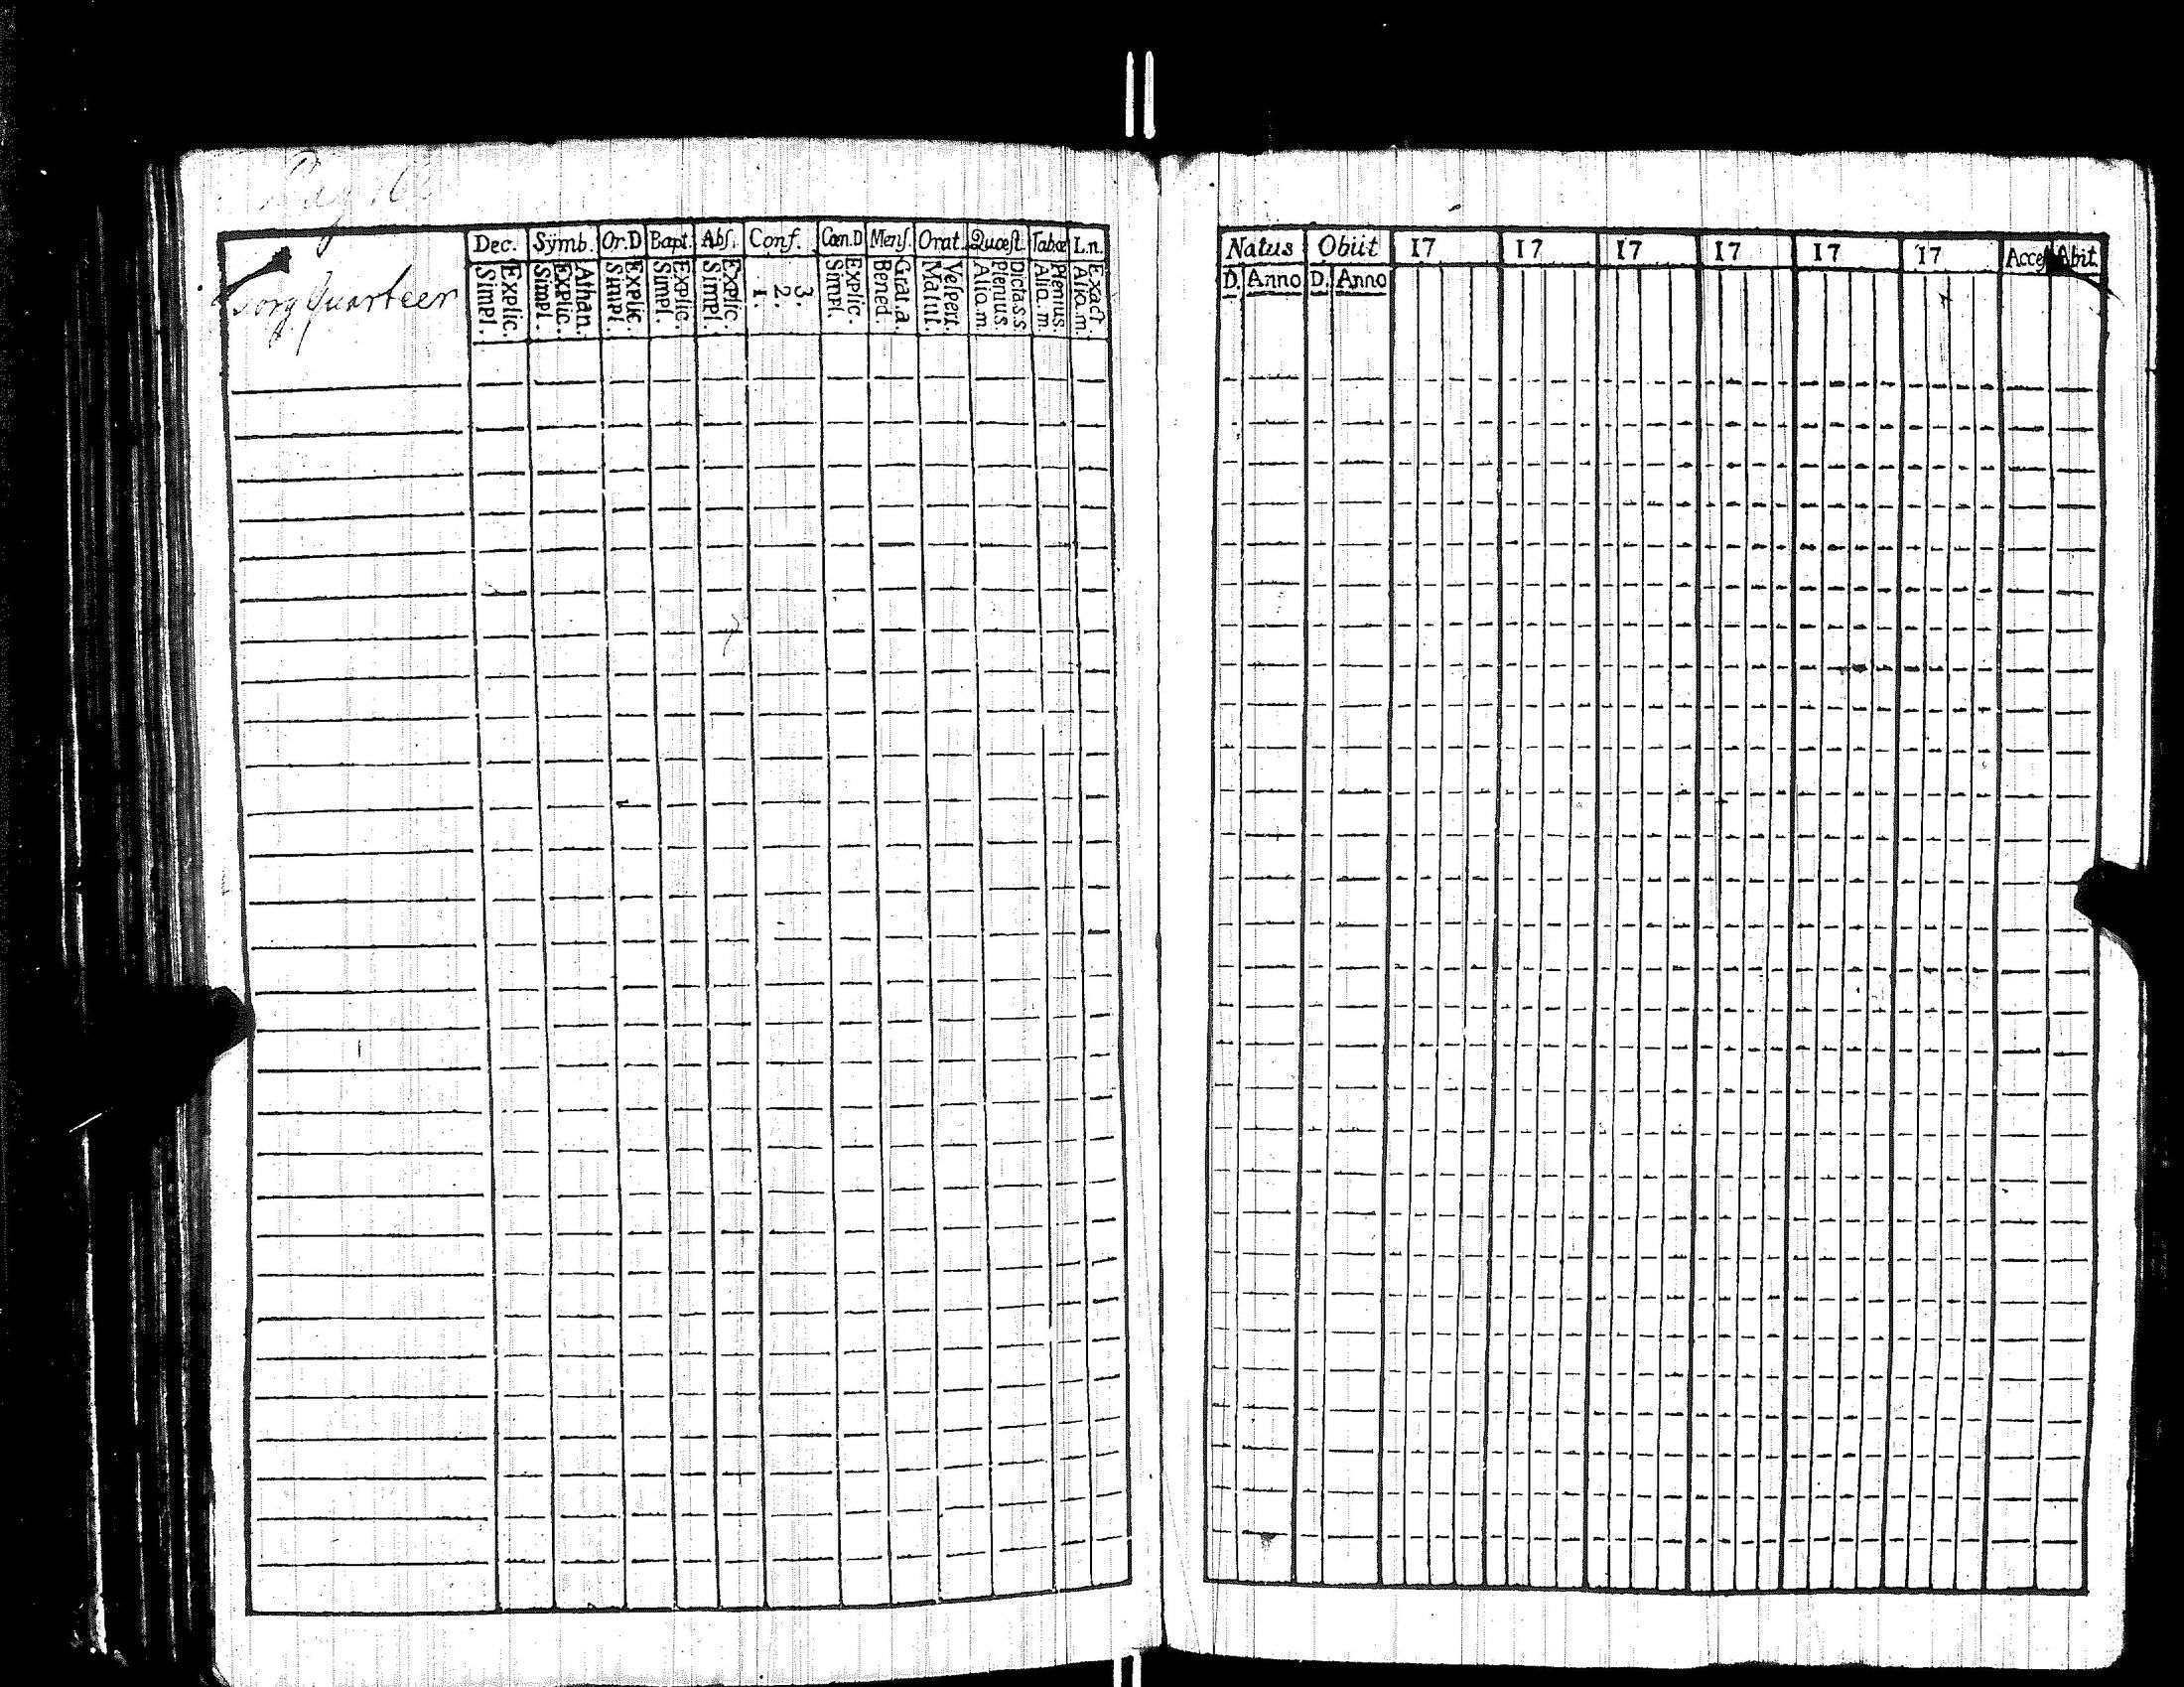 Pag. 103
Torg Quarteer
Dec. Sÿmb. Or.D Bapt. Abſ. Conf. Cœn.D Menſ. Orat. Quæſt. Tabæ L.n.
Simpl. Explic. Simpl. Explic. Athan. Simpl. Explic. Simpl. Explic. Simpl. Explic. 1. 2. 3. Simpl. Explic. Bened. Grat.a. Matut. Veſpert. Alia.m. Plenius. Dicta.s.s Alia.m. Plenius. Alia.m. Exact.
Natus Obiit 17 17 17 17 17 17 Acceſ Abit.
D. Anno D. Anno